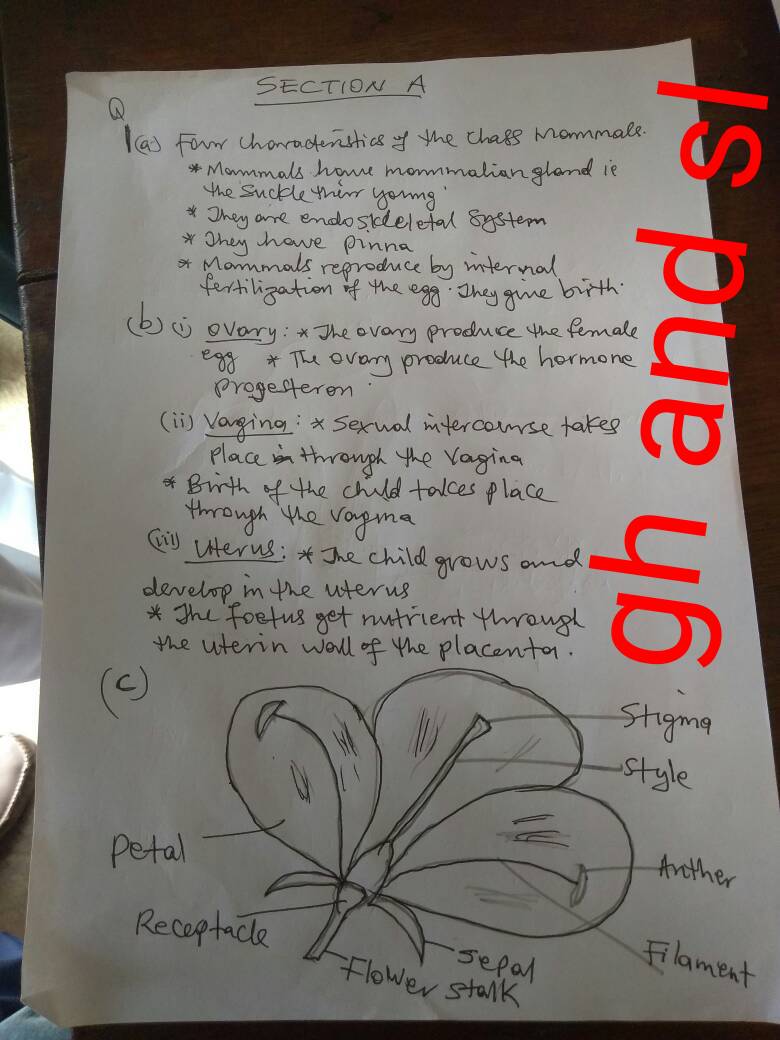 SECTION A
Q
1(a) Four characteristics of the class Mammals.
* Mammals have mammalian gland ie
the suckle their young
* They are endoskeletal system
* They have pinna
* Mammals reproduce by internal
fertilization of the egg. They give birth.
(b) (i) Ovary: * The ovary produce the female
egg * The ovary produce the hormone
progesteron.
(ii) Vagina: * Sexual intercourse takes
place in through the vagina
* Birth of the child takes place
through the vagina
(iii) Uterus: * The child grows and
develop in the uterus
* The foetus get nutrient through
the uterin wall of the placenta.
(c)
Stigma
Style
Petal
Anther
Receptacle
Filament
Sepal
Flower stalk
gh and sl